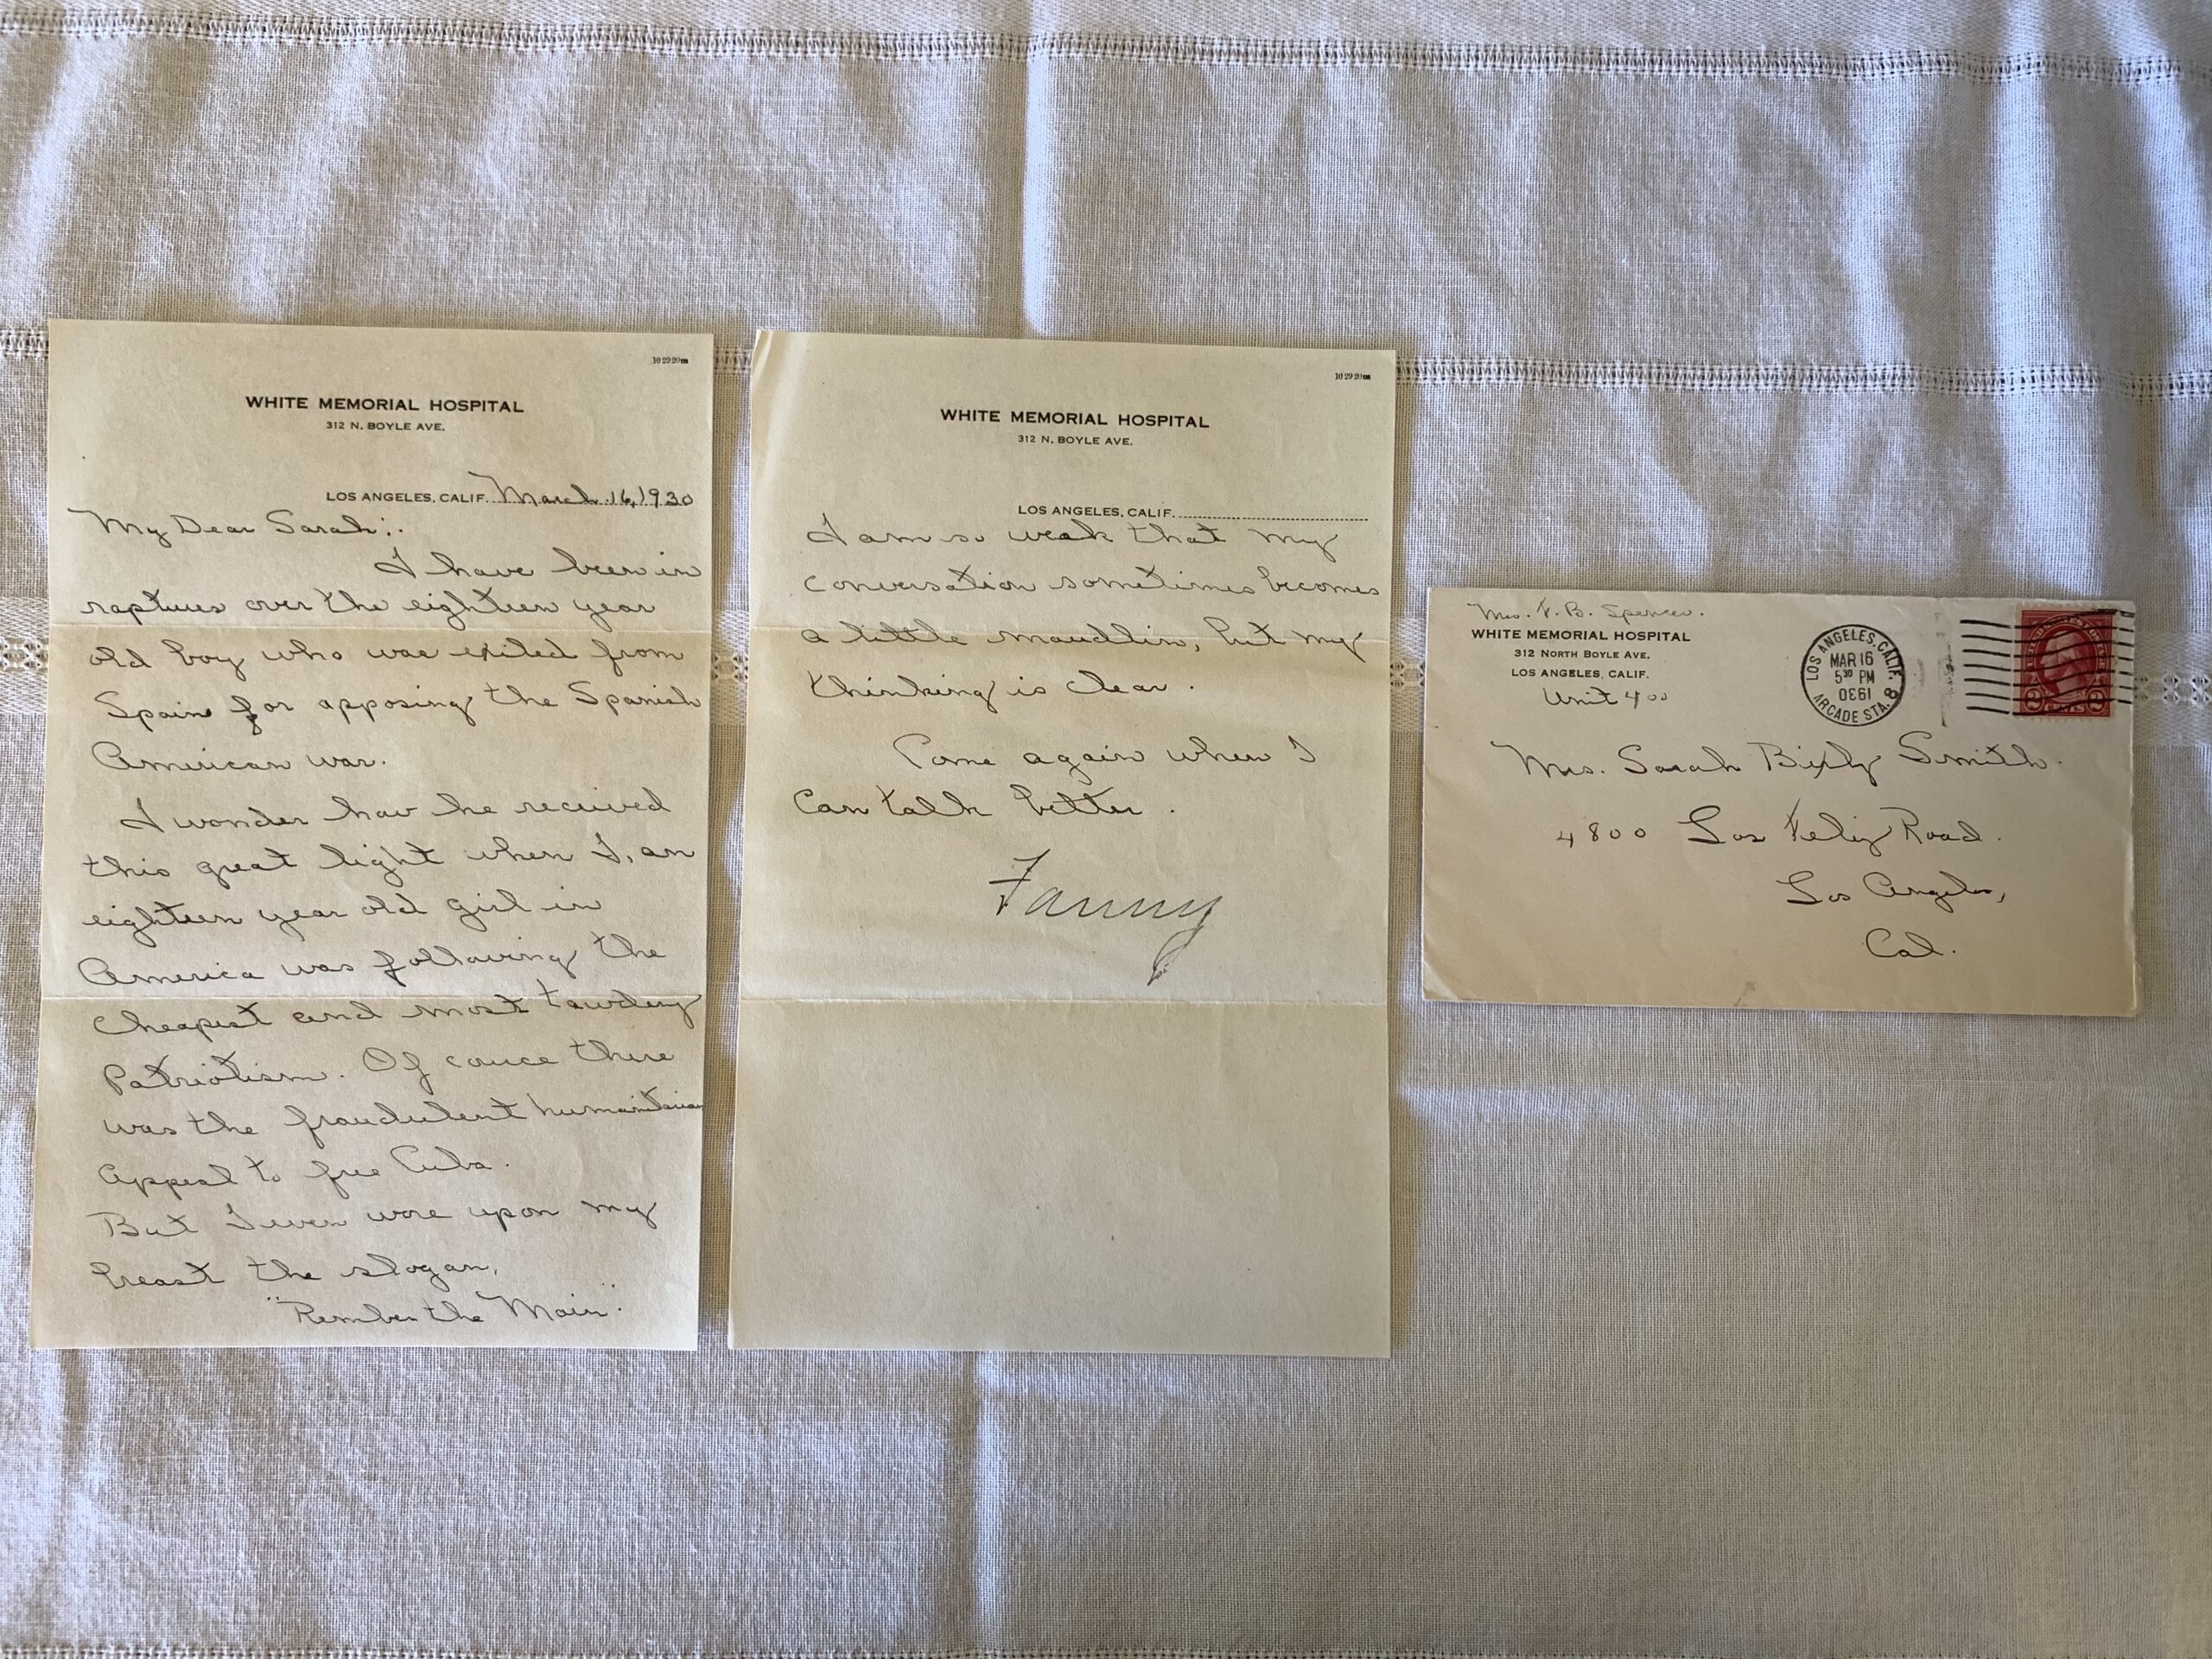 10 29 20m
WHITE MEMORIAL HOSPITAL
312 N. BOYLE AVE.
LOS ANGELES, CALIF. March 16, 1930
My Dear Sarah:.
I have been in
raptures over the eighteen year
old boy who was exiled from
Spain for apposing the Spanish
American war.
I wonder how he received
this great light when I, an
eighteen year old girl in
America was following the
cheapest and most tawdery
Patriotism. Of cource there
was the fraudulent humanitarian
appeal to free Cuba.
But I even wore upon my
breast the slogan,
"Rember the Main."
10 29 20m
WHITE MEMORIAL HOSPITAL
312 N. BOYLE AVE.
LOS ANGELES, CALIF.
I am so weak that my
conversation sometimes becomes
a little maudlin, but my
thinking is clear.
Come again when I
can talk better.
Fanny
Mrs. F. B. Spencer.
WHITE MEMORIAL HOSPITAL
312 NORTH BOYLE AVE.
LOS ANGELES, CALIF.
Unit 400
LOS ANGELES, CALIF. 8
MAR 16
5 30 PM
1930
ARCADE STA.
2 2
Mrs. Sarah Bixby Smith.
4800 Los Feliz Road.
Los Angeles,
Cal.